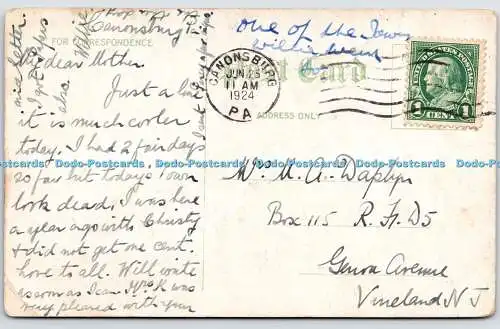 Canonsburg
FOR CORRESPONDENCE.
My dear Mother
Just a bit
it is much cooler
today. I had 2 fair days
so far but todays town
look dead. I was here
a year ago with Christy
& did not get one cent.
love to all. Will write
as soon as I can. Mrs K was
very pleased with your
nice letter
one of the towns
Willie went
CANONSBURG
JUN 25
11 AM
1924
PA
Post Card
ADDRESS ONLY
1 CENT 1
Mrs. M. A. Daplyn
Box 115 R. F. D 5
Genoa Avenue
Vineland N J
Dodo-Postcards Dodo-Postcards Dodo-Postcards Dodo-Postcards Dodo-Postcards Dodo-Postcards